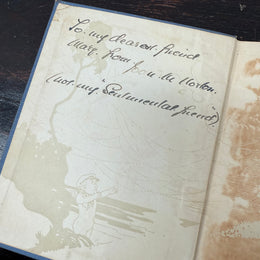 To my dearest friend
Mary from Joan M Norton.
(not my "Sentimental friend").